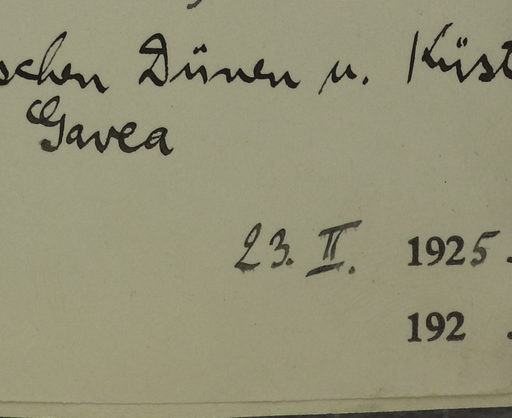 schen Dünen u. Küst
Gavea
23. II. 1925.
192 .